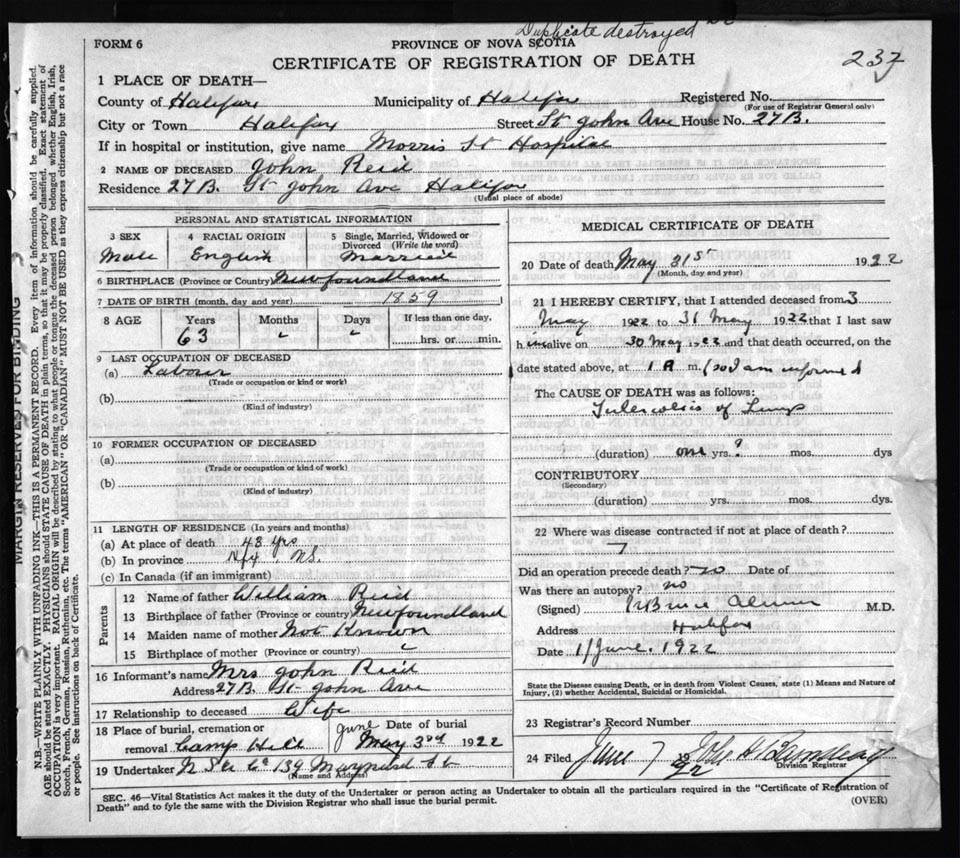 Duplicate destroyed
FORM 6
PROVINCE OF NOVA SCOTIA
CERTIFICATE OF REGISTRATION OF DEATH
237
1 PLACE OF DEATH—
County of Halifax Municipality of Halifax Registered No.
(For use of Registrar General only)
City or Town Halifax Street St John Ave House No. 27B.
If in hospital or institution, give name Morris St Hospital
2 NAME OF DECEASED John Reid
Residence 27B. St John Ave Halifax
(Usual place of abode)
PERSONAL AND STATISTICAL INFORMATION
3 SEX 4 RACIAL ORIGIN 5 Single, Married, Widowed or Divorced (Write the word)
Male English Married
6 BIRTHPLACE (Province or Country) Newfoundland
7 DATE OF BIRTH (month, day and year) 1859
8 AGE Years Months Days If less than one day,
63 " " hrs. or min.
9 LAST OCCUPATION OF DECEASED
(a) Labour
(Trade or occupation or kind or work)
(b)
(Kind of industry)
10 FORMER OCCUPATION OF DECEASED
(a)
(Trade or occupation or kind or work)
(b)
(Kind of industry)
11 LENGTH OF RESIDENCE (In years and months)
(a) At place of death 48 yrs
(b) In province Hfx N.S.
(c) In Canada (if an immigrant)
Parents
12 Name of father William Reid
13 Birthplace of father (Province or country) Newfoundland
14 Maiden name of mother Not Known
15 Birthplace of mother (Province or country) "
16 Informant's name Mrs John Reid
Address 27B. St John Ave
17 Relationship to deceased Wife
18 Place of burial, cremation or removal Camp Hill Date of burial June May 3rd 1922
19 Undertaker N S U Co 139 St
(Name and Address)
MEDICAL CERTIFICATE OF DEATH
20 Date of death May 31st 1922
(Month, day and year)
21 I HEREBY CERTIFY, that I attended deceased from 3
May 1922 to 31 May 1922 that I last saw
him alive on 30 May 1922 and that death occurred, on the
date stated above, at 1 A m. (so I am informed
The CAUSE OF DEATH was as follows:
Tuberculosis of Lungs
(duration) one yrs. ? mos. dys
CONTRIBUTORY
(Secondary)
(duration) yrs. mos. dys.
22 Where was disease contracted if not at place of death?
?
Did an operation precede death? no Date of
Was there an autopsy? no
(Signed) Bruce M.D.
Address Halifax
Date 1/June. 1922
State the Disease causing Death, or in death from Violent Causes, state (1) Means and Nature of
Injury, (2) whether Accidental, Suicidal or Homicidal.
23 Registrar's Record Number
24 Filed June 7 1922 John H Barnstead
Division Registrar
SEC. 46—Vital Statistics Act makes it the duty of the Undertaker or person acting as Undertaker to obtain all the particulars required in the "Certificate of Registration of
Death" and to fyle the same with the Division Registrar who shall issue the burial permit.
(OVER)
MARGIN RESERVED FOR BINDING
N.B.—WRITE PLAINLY WITH UNFADING INK—THIS IS A PERMANENT RECORD. Every item of information should be carefully supplied.
AGE should be stated EXACTLY. PHYSICIANS should STATE CAUSE OF DEATH in plain terms, so that it may be properly classified. Exact statement of
OCCUPATION is very important. RACIAL ORIGIN will be described by stating to what people or tongue the deceased person belonged whether English, Irish,
Scotch, French, German, Russian, Ruthenian, etc. The terms "AMERICAN" or "CANADIAN" MUST NOT BE USED as they express citizenship but not a race
or people. See instructions on back of Certificate.